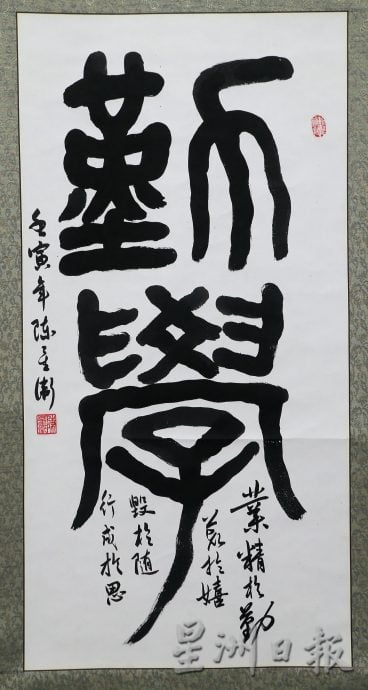 勤學
業精於勤
荒於嬉
毁於随
行成於思
壬寅年 陈
星洲日報